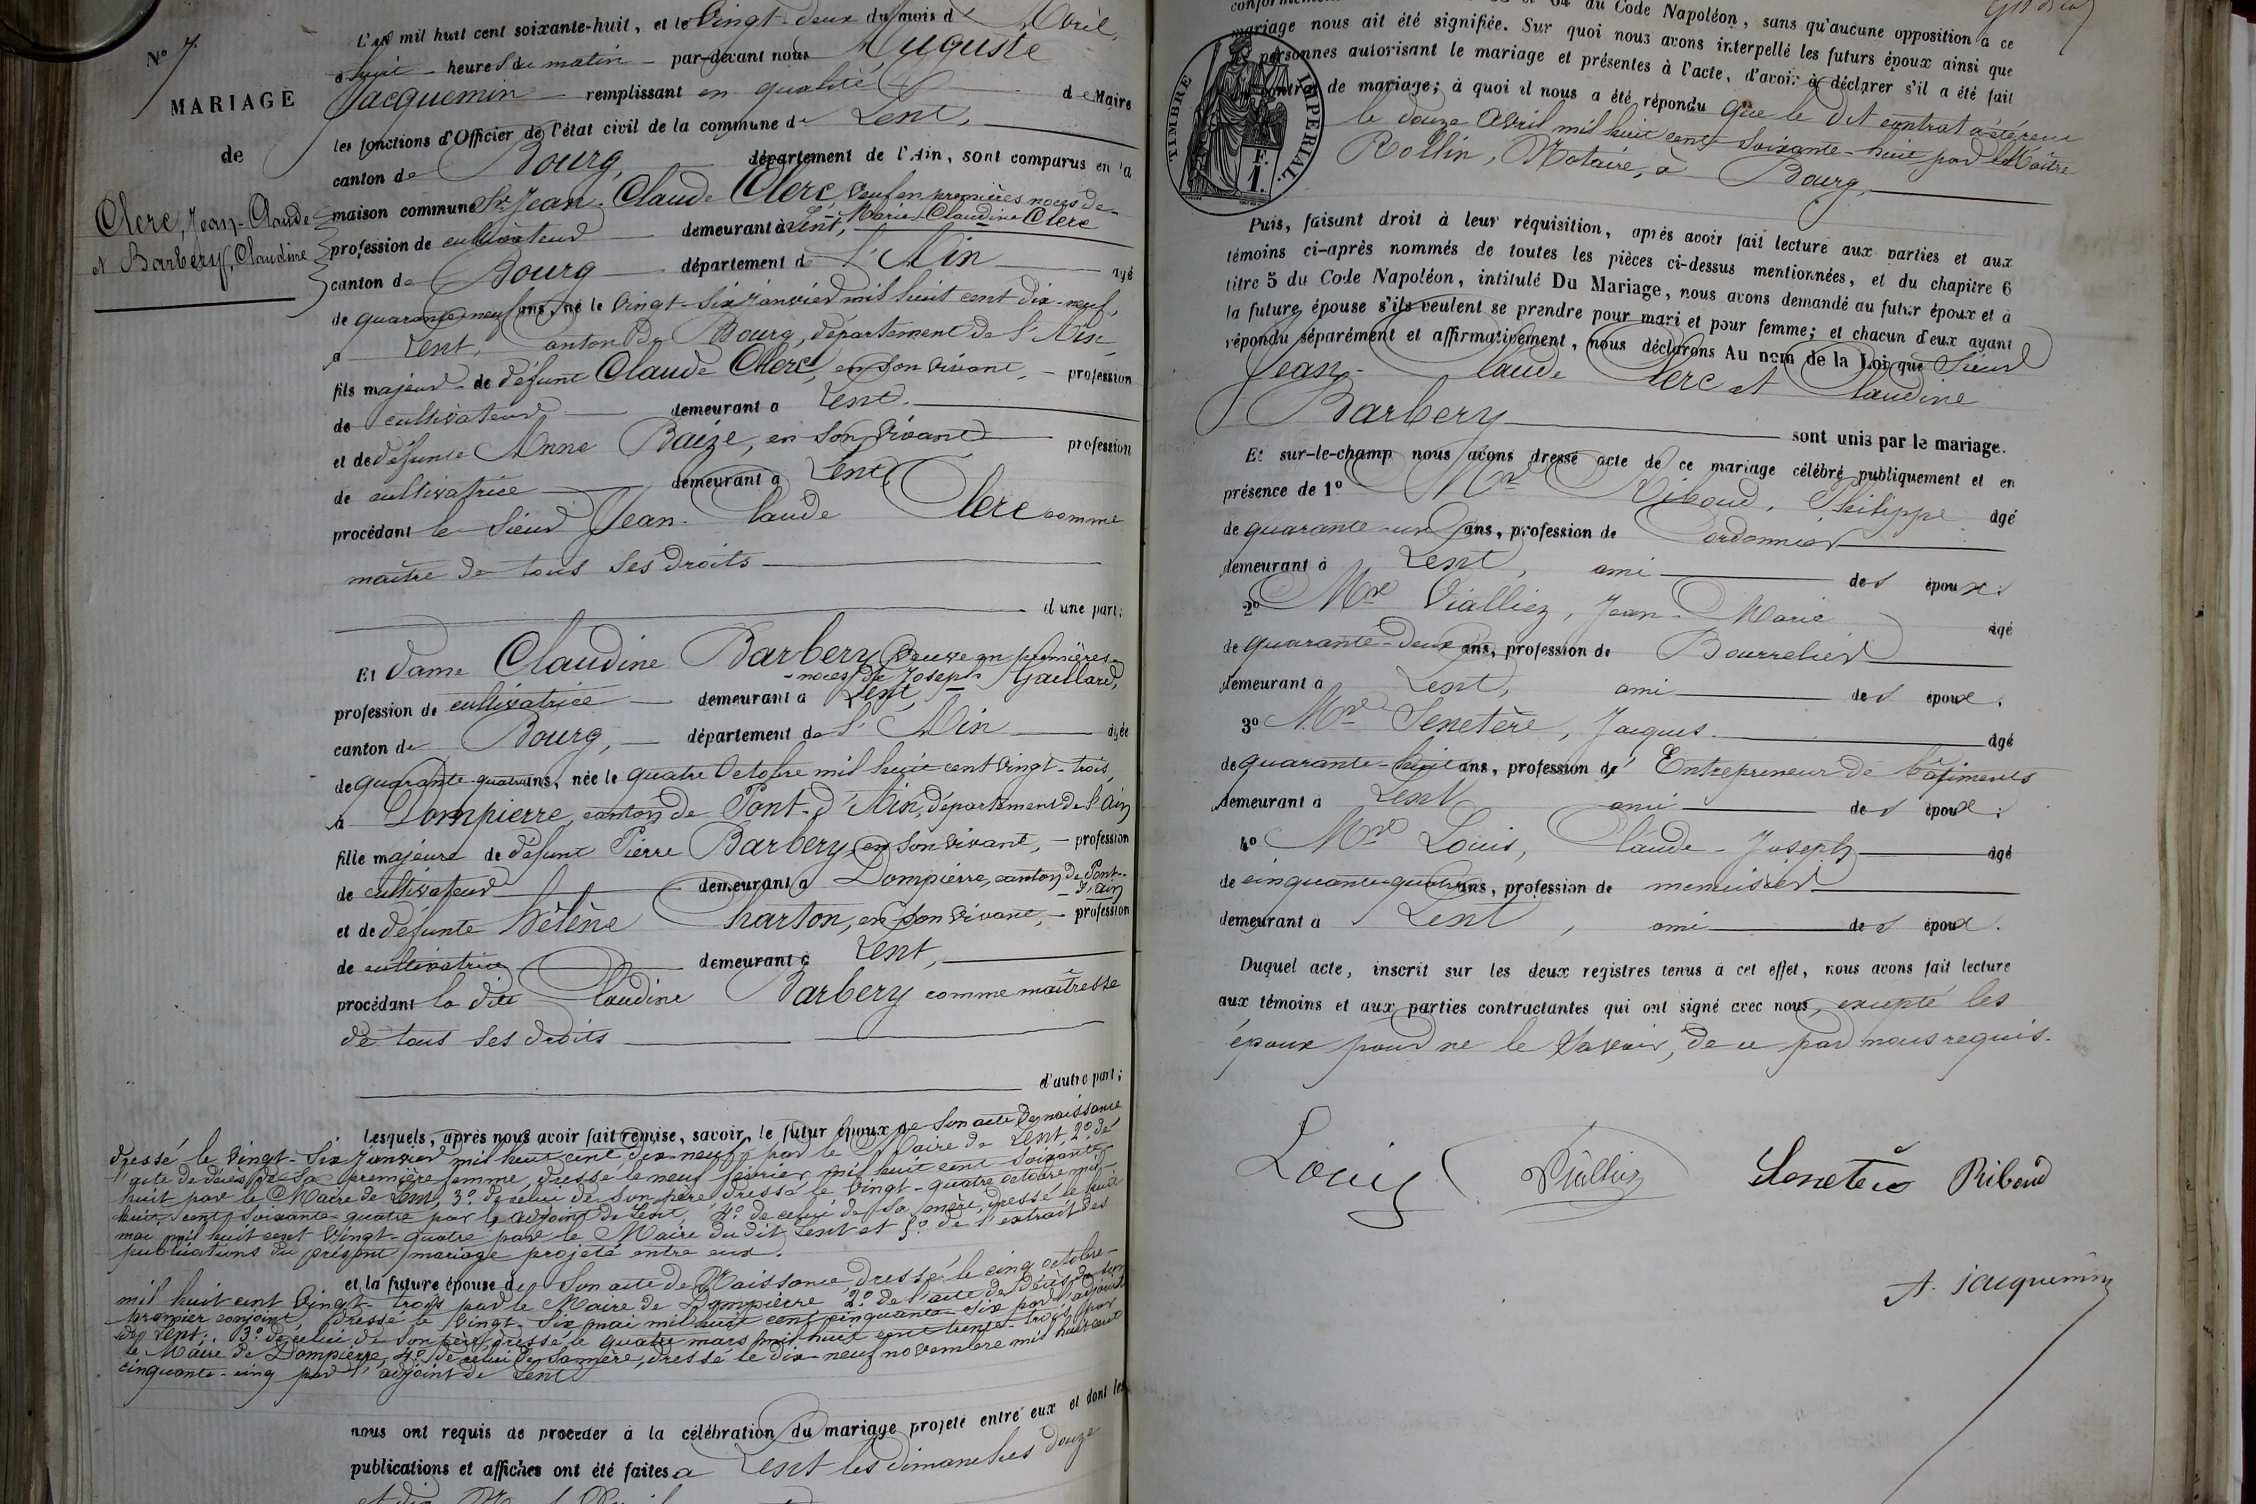 N° 7
MARIAGE
de
Clerc, Jean-Claude
et Barbery, Claudine
L'an mil huit cent soixante-huit, et le vingt-deux du mois d'Avril,
à huit heures du matin par-devant nous Auguste
Jacquemin remplissant en qualité de Maire
les fonctions d'Officier de l'état civil de la commune de Lent,
canton de Bourg, département de l'Ain, sont comparus en la
maison commune Sr Jean-Claude Clerc, veuf en premières noces de
Marie-Claudine Clerc
profession de cultivateur demeurant à Lent,
canton de Bourg département de l'Ain âgé
de quarante-neuf ans, né le vingt-six janvier mil huit cent dix-neuf,
à Lent, canton de Bourg, département de l'Ain,
fils majeur de défunt Claude Clerc, en son vivant, profession
de cultivateur, demeurant à Lent
et de défunte Anne Baize, en son vivant profession
de cultivatrice demeurant à Lent
procédant le Sieur Jean-Claude Clerc comme
maître de tous ses droits
d'une part;
Et dame Claudine Barbery, veuve en premières
noces de Joseph Gaillard,
profession de cultivatrice demeurant à Lent,
canton de Bourg, département de l'Ain âgée
de quarante-quatre ans, née le quatre Octobre mil huit cent vingt-trois,
à Dompierre, canton de Pont-d'Ain, département de l'Ain
fille majeure de défunt Pierre Barbery, en son vivant, profession
de cultivateur demeurant à Dompierre, canton de Pont-
d'Ain
et de défunte Hélène Charton, en son vivant, profession
de cultivatrice demeurant à Lent,
procédant la dite Claudine Barbery comme maîtresse
de tous ses droits
d'autre part;
Lesquels, après nous avoir fait remise, savoir, le futur époux de son acte de naissance
dressé le vingt-six janvier mil huit cent dix-neuf par le Maire de Lent, 2° de
l'acte de décès de sa première femme, dressé le neuf février mil huit cent soixante-
huit par le Maire de Lent, 3° de celui de son père dressé le vingt-quatre octobre mil
huit cent soixante-quatre par l'adjoint de Lent, 4° de celui de sa mère, dressé le huit
mai mil huit cent vingt-quatre par le Maire du dit Lent et 5° de l'extrait des
publications du présent mariage projeté entre eux.
et la future épouse de son acte de Naissance dressé le cinq octobre
mil huit cent vingt-trois par le Maire de Dompierre, 2° de l'acte de décès de son
premier conjoint, dressé le vingt-six mai mil huit cent cinquante-six par l'adjoint
de Lent; 3° de celui de son père, dressé le quatre mars mil huit cent trente-trois, par
le Maire de Dompierre, 4° de celui de sa mère, dressé le dix-neuf novembre mil huit cent
cinquante-cinq par l'adjoint de Lent
nous ont requis de procéder à la célébration du mariage projeté entre eux et dont les
publications et affiches ont été faites à Lent les dimanches douze
du Code Napoléon, sans qu'aucune opposition à ce
mariage nous ait été signifiée. Sur quoi nous avons interpellé les futurs époux ainsi que
personnes autorisant le mariage et présentes à l'acte, d'avoir à déclarer s'il a été fait
contrat de mariage; à quoi il nous a été répondu que le dit contrat a été reçu
le douze Avril mil huit cent soixante-huit par Maître
Rollin, Notaire, à Bourg,
TIMBRE IMPERIAL.
F.
1.
Puis, faisant droit à leur réquisition, après avoir fait lecture aux parties et aux
témoins ci-après nommés de toutes les pièces ci-dessus mentionnées, et du chapitre 6
titre 5 du Code Napoléon, intitulé Du Mariage, nous avons demandé au futur époux et à
la future épouse s'ils veulent se prendre pour mari et pour femme; et chacun d'eux ayant
répondu séparément et affirmativement, nous déclarons Au nom de la Loi que Sieur
Jean-Claude Clerc et Claudine
Barbery sont unis par le mariage.
Et sur-le-champ nous avons dressé acte de ce mariage célébré publiquement et en
présence de 1° Mr Riboud, Philippe âgé
de quarante-un ans, profession de Cordonnier
demeurant à Lent, ami des époux.
2° Mr Vialliez, Jean-Marie âgé
de quarante-deux ans, profession de Bourrelier
demeurant à Lent, ami des époux.
3° Mr Senetère, Jacques âgé
de quarante-huit ans, profession d' Entrepreneur de bâtiments
demeurant à Lent ami des époux.
4° Mr Louis, Claude-Joseph âgé
de cinquante-quatre ans, profession de menuisier
demeurant à Lent, ami des époux.
Duquel acte, inscrit sur les deux registres tenus à cet effet, nous avons fait lecture
aux témoins et aux parties contractantes qui ont signé avec nous, excepté les
époux pour ne le savoir, de ce par nous requis.
Louis Vialliez Senetère Riboud
A. Jacquemin